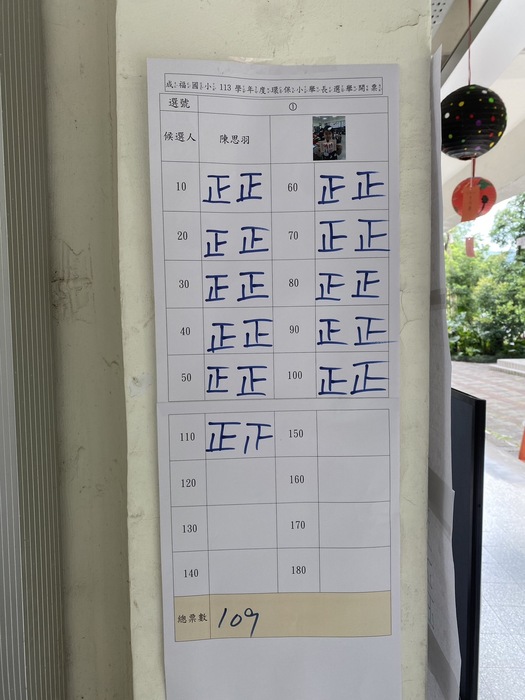 成福國小113學年度環保小學長選舉開票
選號 ①
候選人 陳思羽
10 正正 60 正正
20 正正 70 正正
30 正正 80 正正
40 正正 90 正正
50 正正 100 正正
110 正下 150
120 160
130 170
140 180
總票數 109